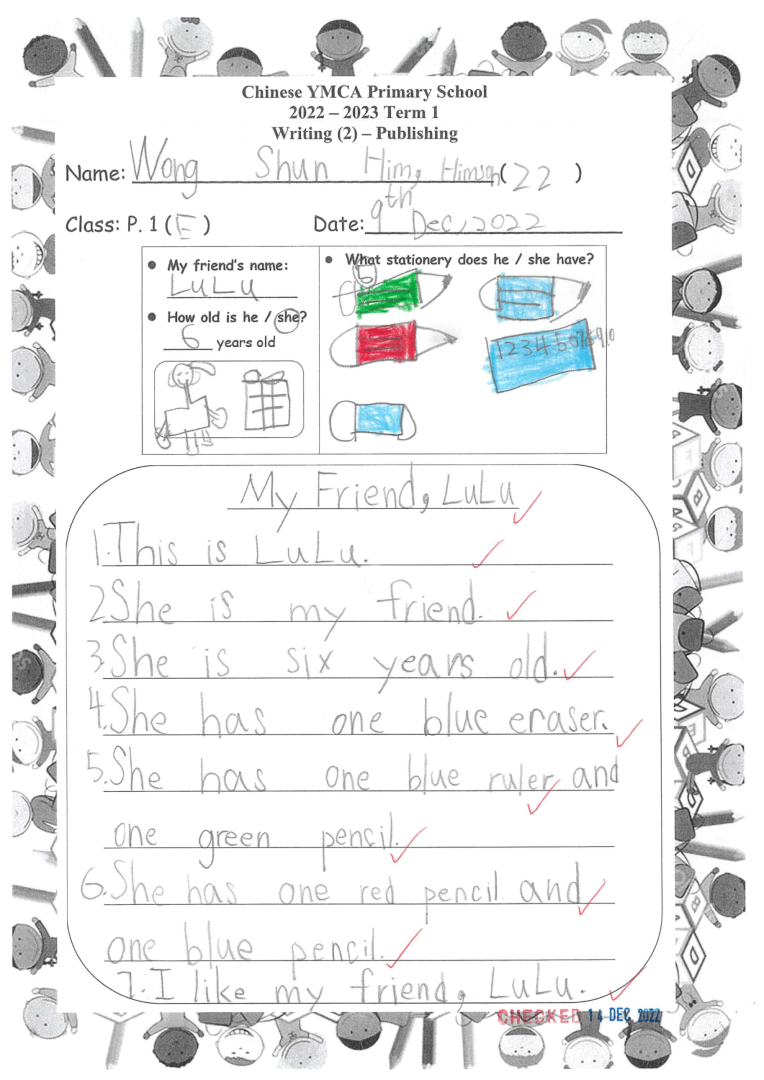 Chinese YMCA Primary School
2022 – 2023 Term 1
Writing (2) – Publishing
Name: Wong Shun Him, Himson (22)
Class: P. 1 (E) Date: 9th Dec, 2022
• My friend's name:
LuLu
• How old is he / she?
6 years old
• What stationery does he / she have?
6
12345678910
My Friend, LuLu
1. This is LuLu.
2. She is my friend.
3. She is six years old.
4. She has one blue eraser.
5. She has one blue ruler and
one green pencil.
6. She has one red pencil and
one blue pencil.
7. I like my friend, LuLu.
CHECKED 14 DEC 2022